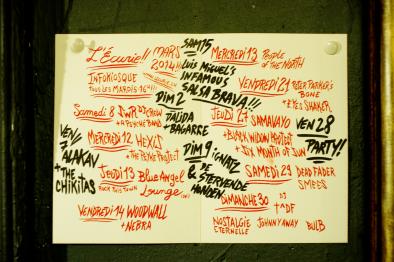 L'Écurie!!
MARS
2014!!
INFOKIOSQUE
TOUS LES MARDIS 16H!!!
Samedi 8 DWR DJ CREW
+ A PSYCHÉ BAND
VEN
7
ALAKAV
+ THE
CHIKITAS
MERCREDI 12 HEXIS
+ THE PSYKE PROJECT
JEUDI 13 Blue Angel
ROCK THIS TOWN Lounge
VENDREDI 14 WOODWALL
+ NEBRA
SAM 15
LUIS MIGUEL'S
INFAMOUS
SALSA BRAVA!!!
DIM 2
DALIDA
BAGARRE
DIM 9 IGNATZ
& DE
STERVENDE
HONDEN
MERCREDI 13 PEOPLE
OF THE NORTH
VENDREDI 21 PETER PARKER'S
BONE
+ EYE SHAKER
JEUDI 27 SAMAVAYO
+ BLACK WIDOW PROJECT
+ SIX MONTH OF SUN
VEN 28
PARTY!
SAMEDI 29 DEAD FADER
SMEES
DIMANCHE 30 DJ
NOSTALGIE
ETERNELLE
JOHNNY AWAY
BULB